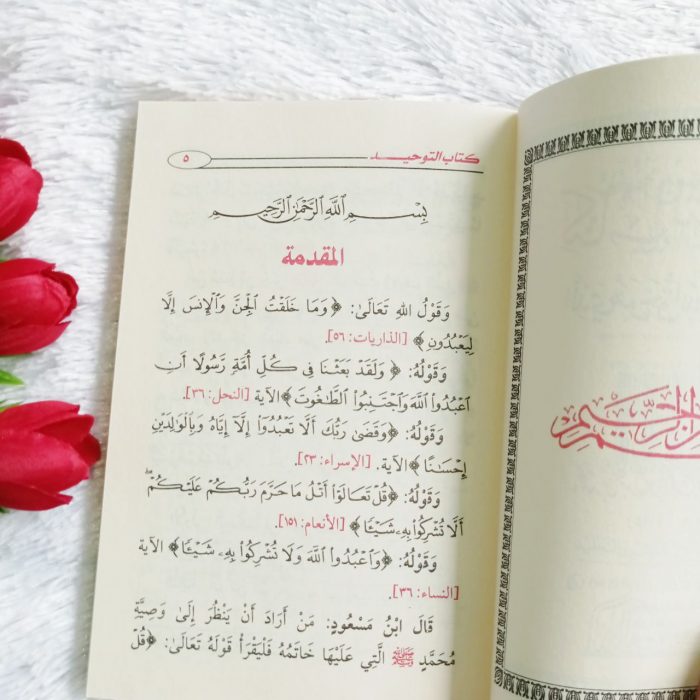 كتاب التوحيد ٥
بِسْمِ اللَّهِ الرَّحْمَٰنِ الرَّحِيمِ
المقدمة
وَقَوْلُ اللهِ تَعَالَىٰ: ﴿وَمَا خَلَقْتُ ٱلْجِنَّ وَٱلْإِنسَ إِلَّا
لِيَعْبُدُونِ﴾ [الذاريات: ٥٦].
وَقَوْلُهُ: ﴿وَلَقَدْ بَعَثْنَا فِى كُلِّ أُمَّةٍ رَّسُولًا أَنِ
ٱعْبُدُوا۟ ٱللَّهَ وَٱجْتَنِبُوا۟ ٱلطَّٰغُوتَ﴾ الآية [النحل: ٣٦].
وَقَوْلُهُ: ﴿وَقَضَىٰ رَبُّكَ أَلَّا تَعْبُدُوٓا۟ إِلَّآ إِيَّاهُ وَبِٱلْوَٰلِدَيْنِ
إِحْسَٰنًا﴾ الآية. [الإسراء: ٢٣].
وَقَوْلُهُ: ﴿قُلْ تَعَالَوْا۟ أَتْلُ مَا حَرَّمَ رَبُّكُمْ عَلَيْكُمْ ۖ
أَلَّا تُشْرِكُوا۟ بِهِۦ شَيْـًٔا﴾ [الأنعام: ١٥١].
وَقَوْلُهُ: ﴿وَٱعْبُدُوا۟ ٱللَّهَ وَلَا تُشْرِكُوا۟ بِهِۦ شَيْـًٔا﴾ الآية
[النساء: ٣٦].
قَالَ ابْنُ مَسْعُودٍ: مَنْ أَرَادَ أَنْ يَنْظُرَ إِلَىٰ وَصِيَّةِ
مُحَمَّدٍ ﷺ الَّتِي عَلَيْهَا خَاتَمُهُ فَلْيَقْرَأْ قَوْلَهُ تَعَالَىٰ: ﴿قُلْ